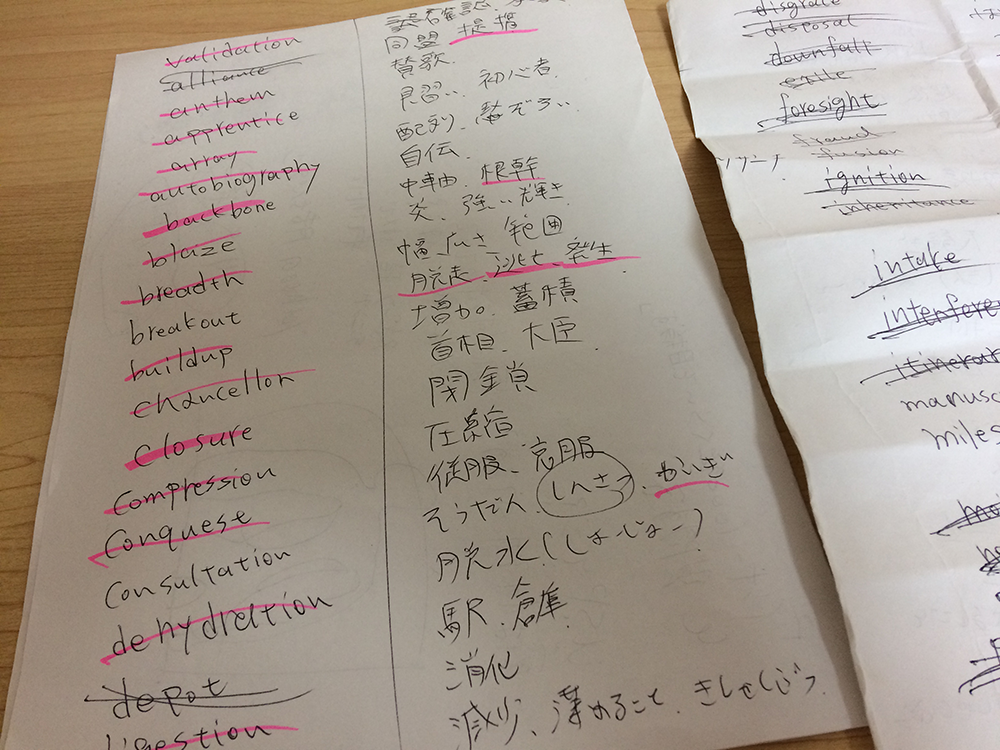 validation
alliance 同盟 提携
anthem 賛歌.
apprentice 見習い、初心者
array 配列、勢ぞろい
autobiography 自伝.
backbone 中軸、根幹
blaze 炎、強い輝き
breadth 幅、広さ 範囲
breakout 脱走、逃亡、発生
buildup 増加、蓄積
chancellor 首相、大臣.
closure 閉鎖
compression 圧縮
conquest 征服、克服
consultation そうだん、しんさつ、かいぎ
dehydration 脱水(しょーじょー)
depot 駅、倉庫.
digestion 消化
減少、薄めること、きしゃくぶつ
disgrace
disposal
downfall
exile
foresight
fraud
fusion
ignition
inheritance
intake
interfere
itinerar
manusc
miles